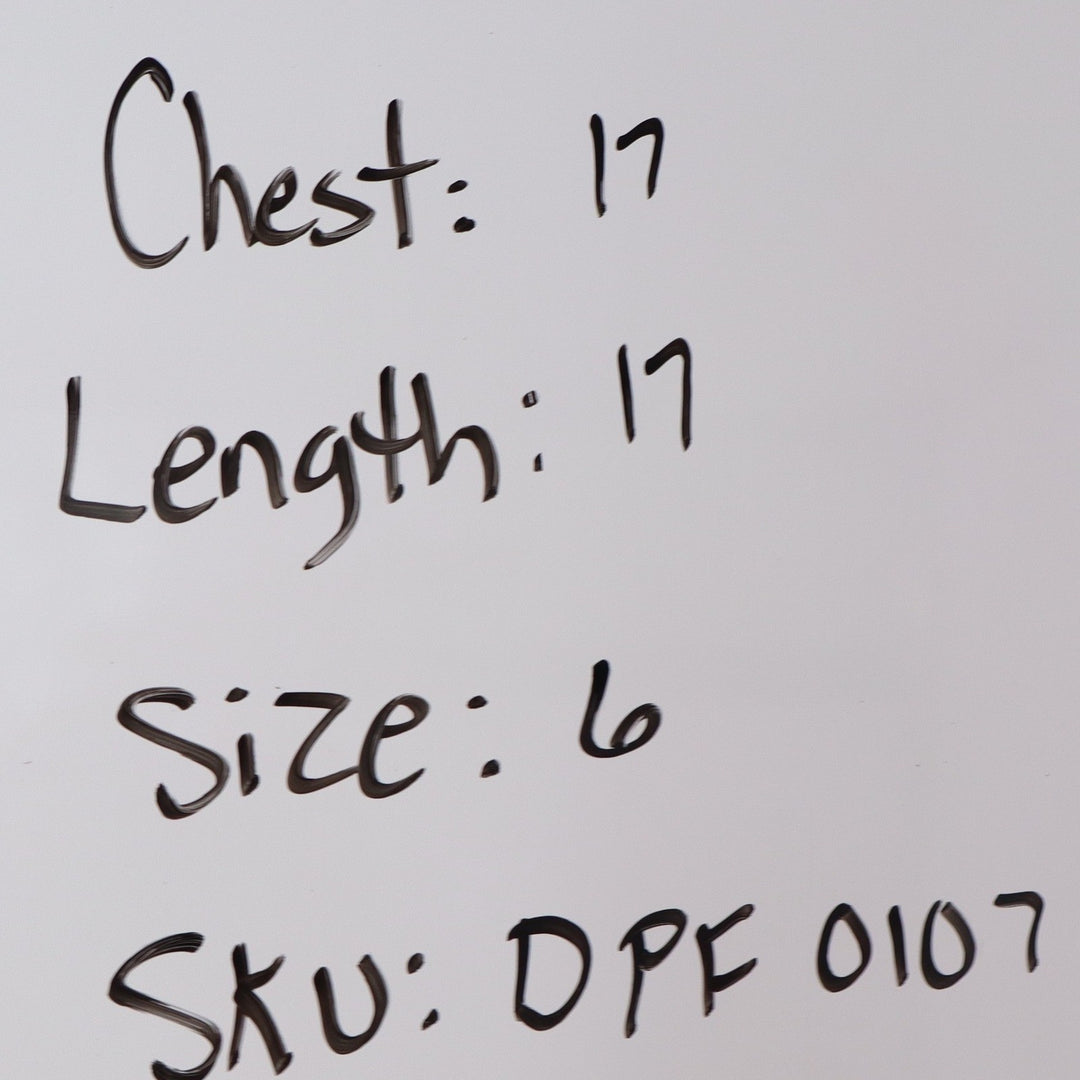 Chest: 17
Length: 17
Size: 6
SKU: DPF 0107